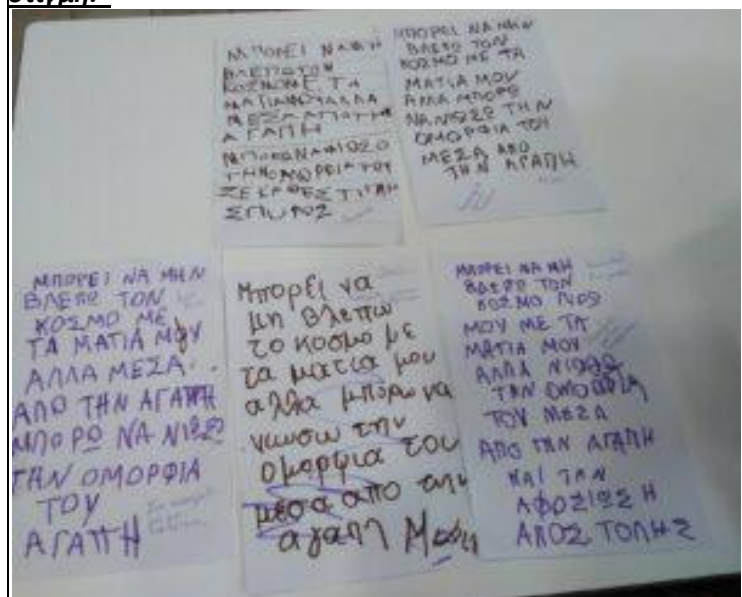 στιγμή.
ΜΠΟΡΕΙ ΝΑ ΜΗ
ΒΛΕΠΩ ΤΟΝ
ΚΟΣΜΟ ΜΕ ΤΑ
ΜΑΤΙΑ ΜΟΥ ΑΛΛΑ
ΜΕΣΑ ΑΠΟ ΤΗΝ
ΑΓΑΠΗ
ΜΠΟΡΩ ΝΑ
ΤΗΝ ΤΟΥ
ΣΕ ΚΑΘΕ ΣΤΙΓΜΗ
ΣΠΥΡΟΣ
ΜΠΟΡΕΙ ΝΑ ΜΗΝ
ΒΛΕΠΩ ΤΟΝ
ΚΟΣΜΟ ΜΕ ΤΑ
ΜΑΤΙΑ ΜΟΥ
ΑΛΛΑ ΜΠΟΡΩ
ΝΑ ΝΙΩΣΩ ΤΗΝ
ΟΜΟΡΦΙΑ ΤΟΥ
ΜΕΣΑ ΑΠΟ
ΤΗΝ ΑΓΑΠΗ
ΜΠΟΡΕΙ ΝΑ ΜΗΝ
ΒΛΕΠΩ ΤΟΝ
ΚΟΣΜΟ ΜΕ
ΤΑ ΜΑΤΙΑ ΜΟΥ
ΑΛΛΑ ΜΕΣΑ
ΑΠΟ ΤΗΝ ΑΓΑΠΗ
ΜΠΟΡΩ ΝΑ ΝΙΩΣΩ
ΤΗΝ ΟΜΟΡΦΙΑ
ΤΟΥ
ΑΓΑΠΗ
Μπορεί να
μη βλεπω
το κοσμο με
τα ματια μου
αλλα μπορω να
νιωσω την
ομορφια του
μεσα απο την
αγαπη
ΜΠΟΡΕΙ ΝΑ ΜΗ
ΒΛΕΠΩ ΤΟΝ
ΚΟΣΜΟ ΓΥΡΩ
ΜΟΥ ΜΕ ΤΑ
ΜΑΤΙΑ ΜΟΥ
ΑΛΛΑ ΝΙΩΘΩ
ΤΗΝ ΟΜΟΡΦΙΑ
ΤΟΥ ΜΕΣΑ
ΑΠΟ ΤΗΝ ΑΓΑΠΗ
ΚΑΙ ΤΗΝ
ΑΦΟΣΙΩΣΗ
ΑΠΟΣΤΟΛΗΣ